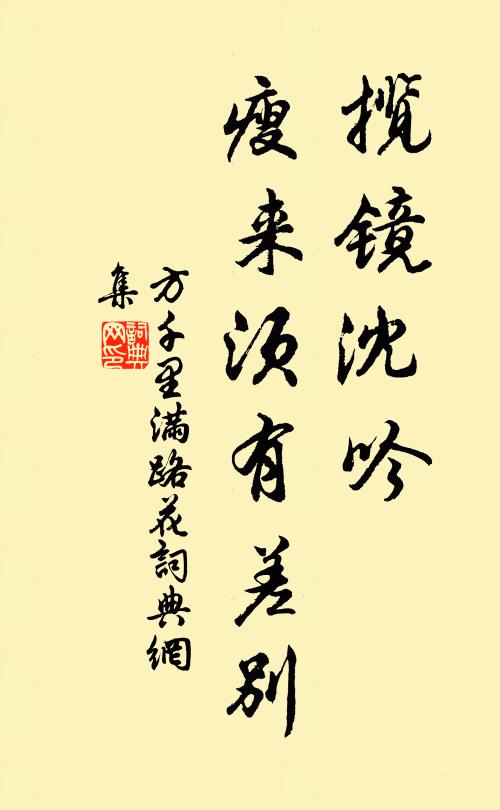 揽镜沈吟
瘦来须有差别
方千里满路花詞典網
集
詞典
网印